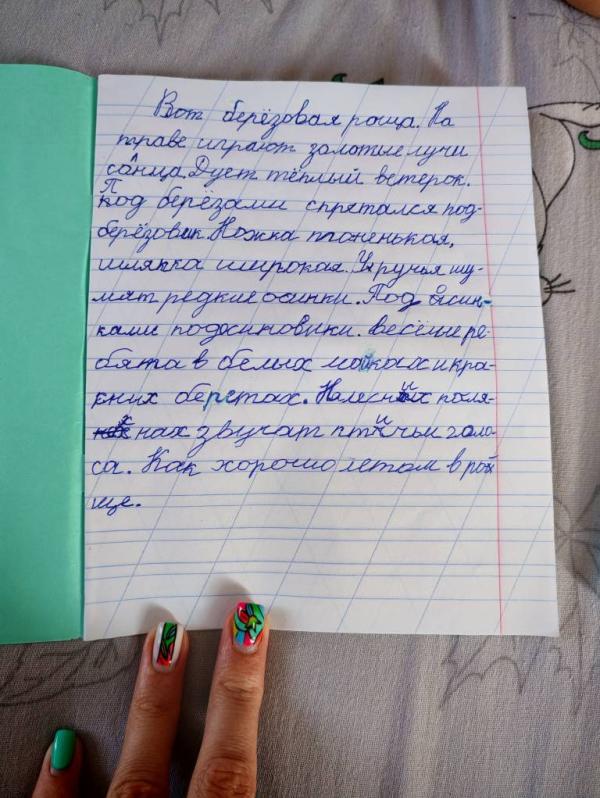 Вот берёзовая роща. На
траве играют золотые лучи
солнца. Дует тёплый ветерок.
Под берёзами спрятался под-
берёзовик. Ножка тоненькая,
шляпка широкая. У ручья шу-
мят редкие осинки. Под осин-
ками подосиновики. Весёлые ре-
бята в белых майках и кра-
сных беретах. На лесных поля-
нах звучат птичьи голо-
са. Как хорошо летом в ро
ще.